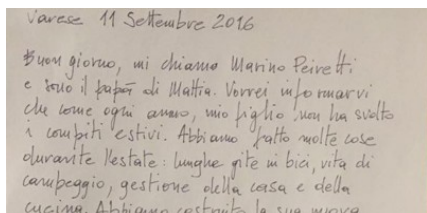 Varese 11 Settembre 2016
Buon giorno, mi chiamo Marino Peiretti
e sono il papà di Mattia. Vorrei informarvi
che come ogni anno, mio figlio non ha svolto
i compiti estivi. Abbiamo fatto molte cose
durante l'estate: lunghe gite in bici, vita di
campeggio, gestione della casa e della
cucina. Abbiamo costruito la sua nuova